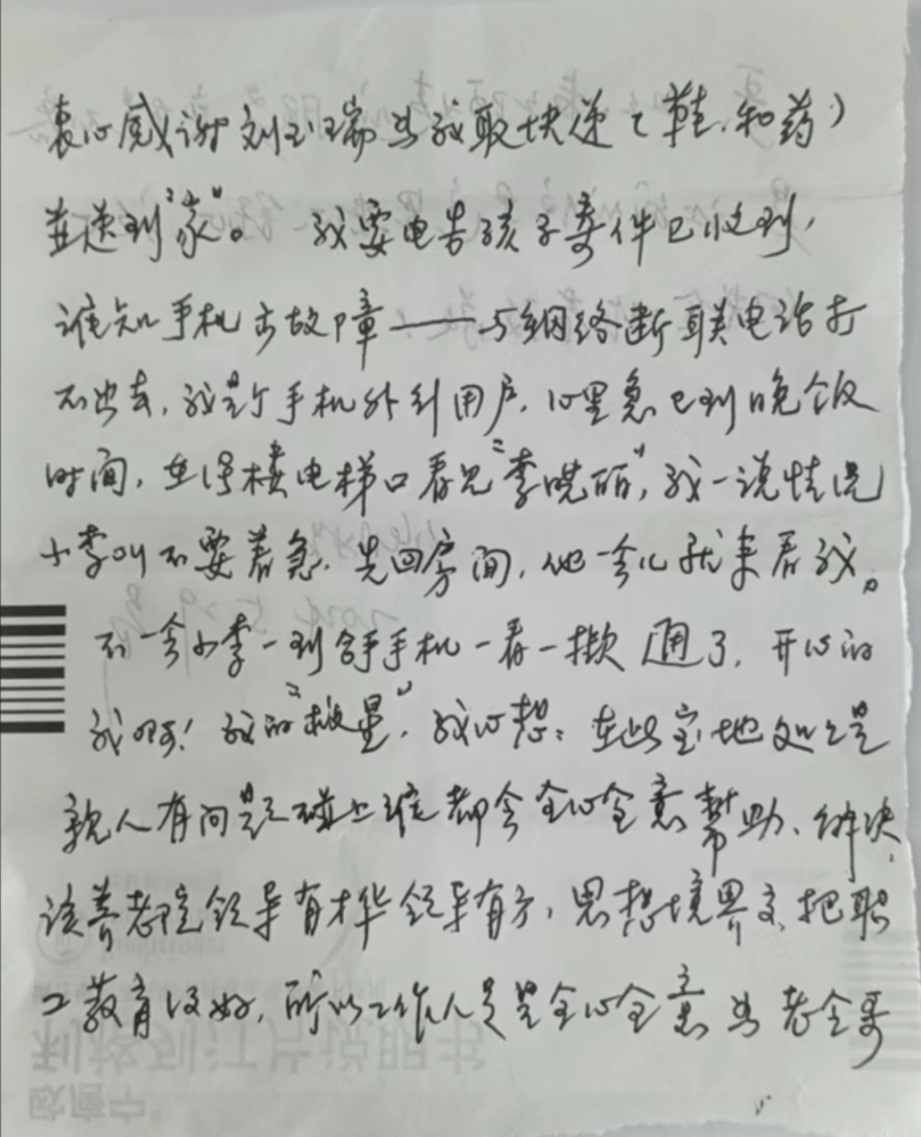 衷心感谢刘玉瑞为我取快递(鞋.和药)
並送到"家"。 我要电告孩子寄件已收到,
谁知手机出故障——与网络断联电话打
不出去,我是个手机外行用户,心里急已到晚饭
时间,在得楼电梯口看见"李晓丽",我一说情况
小李叫不要着急.先回房间,他一会儿就来看我。
不一会小李一到拿手机一看一揿通了,开心的
我啊!我的"救星",我心想:在此宝地处处是
亲人有问题碰上谁都会全心全意帮助、解决,
该养老院领导有才华领导有方,思想境界高,把职
工教育得好,所以工作人员是全心全意为老人
利格列汀片说明书
欧唐宁